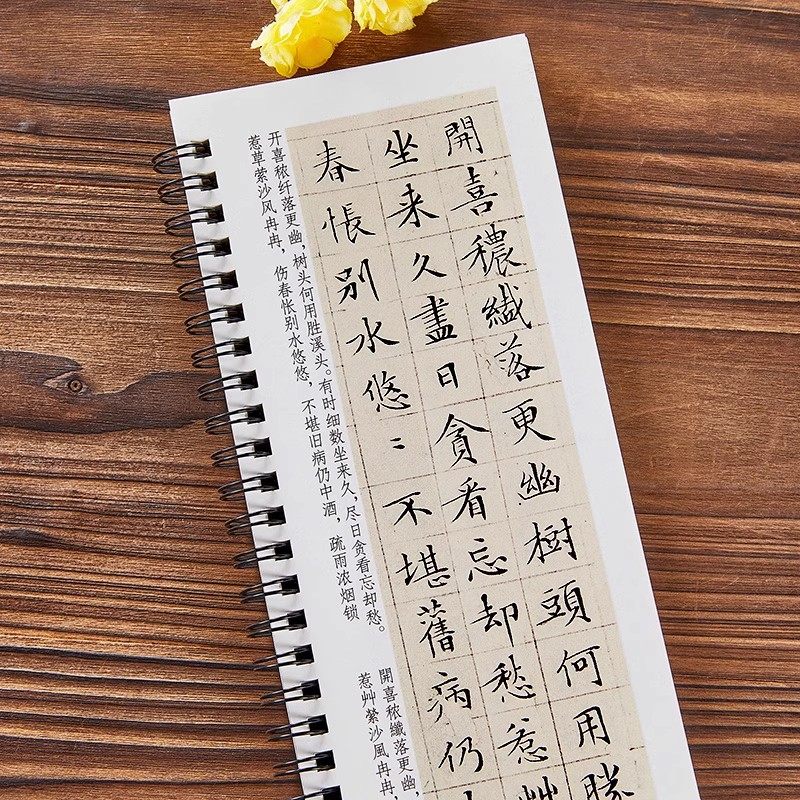 開喜穠纎落更幽樹頭何用勝
坐来久盡日貪看忘却愁惹艸
春悵別水悠〻不堪舊病仍
开喜秾纤落更幽，树头何用胜溪头。有时细数坐来久，尽日贪看忘却愁。
惹草萦沙风冉冉，伤春怅别水悠悠，不堪旧病仍中酒，疏雨浓烟锁
開喜秾纖落更幽，
惹艸縈沙風冉冉，